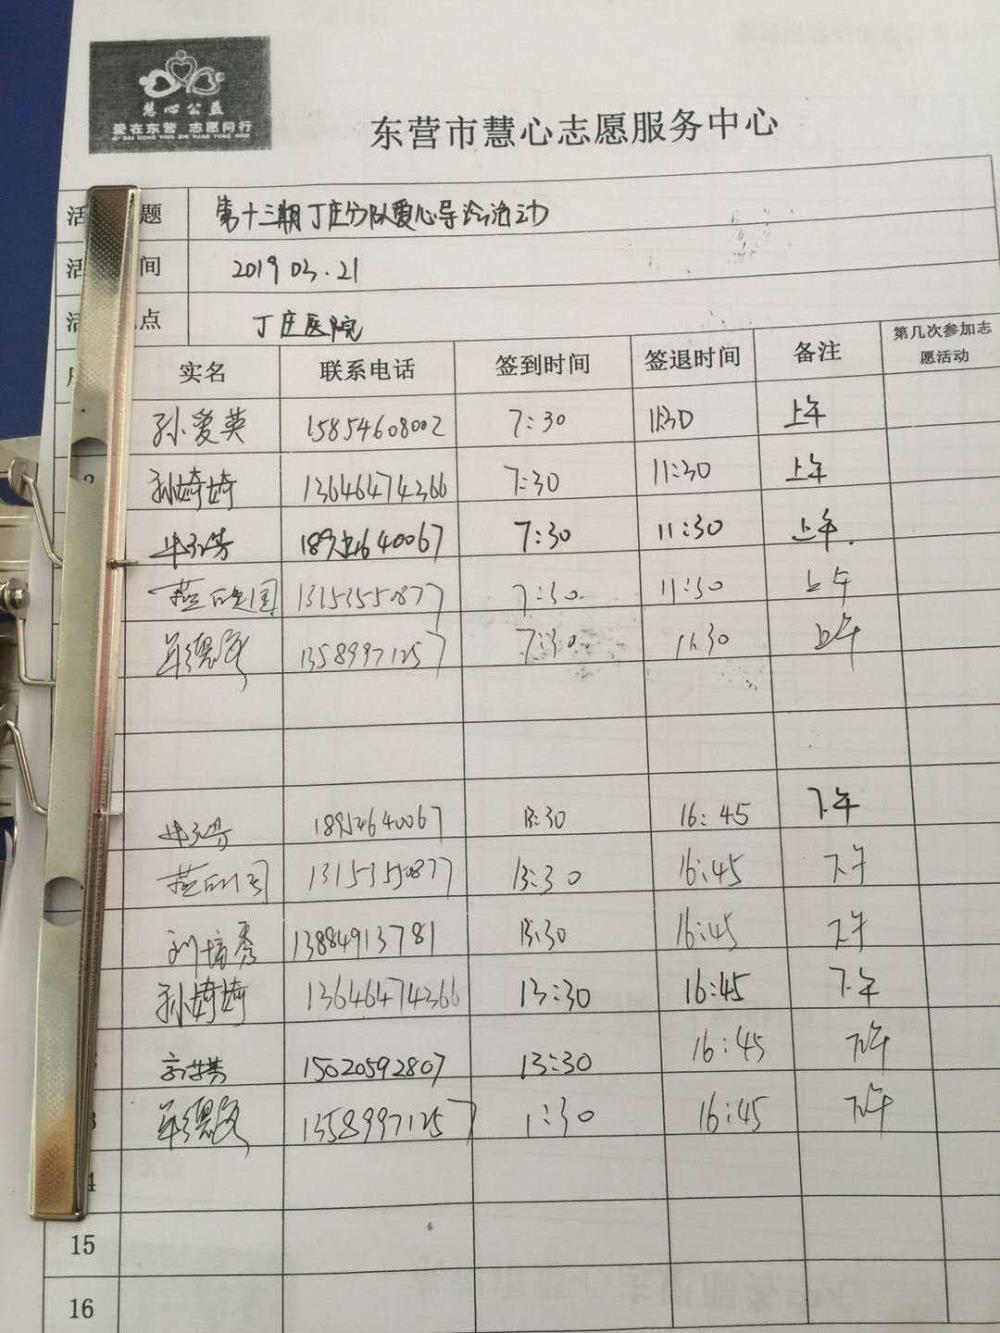 慧心公益
爱在东营 志愿同行
AI ZAI DONG YING ZHI YUAN TONG XING
东营市慧心志愿服务中心
活 题 第十三期丁庄分队爱心导诊活动
活 间 2019 03.21
活 点 丁庄医院
实名 联系电话 签到时间 签退时间 备注 第几次参加志愿活动
孙爱英 15854608002 7:30 11:30 上午
孙婍婍 13646474366 7:30 11:30 上午
640067 7:30 11:30 上午.
13153550877 7:30. 11:30 上午
13589971257 7:30 11:30 上午
18954640067 13:30 16:45 下午
13153550877 13:30 16:45 下午
刘培秀 13884913781 13:30 16:45 下午
孙婍婍 13646474366 13:30 16:45 下午
15020592807 13:30 16:45 下午
13589971257 1:30 16:45 下午
15
16